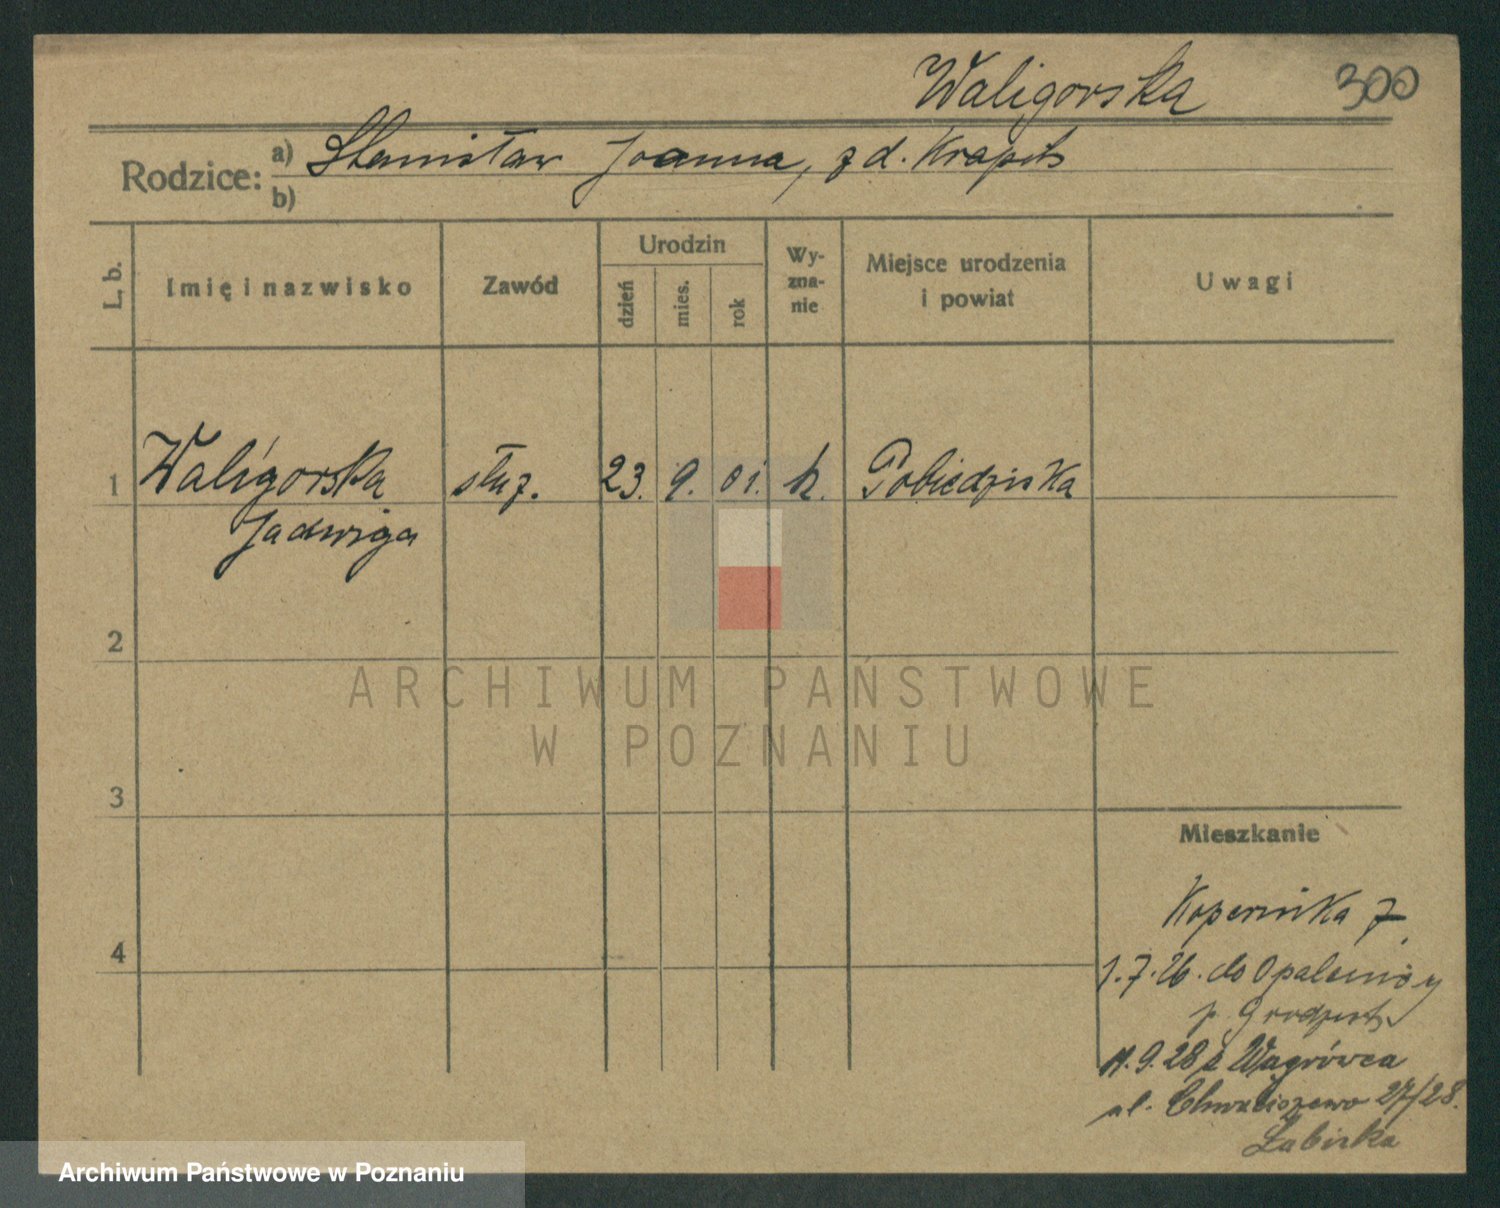 Waligorska 300
Rodzice: a) Stanisław Joanna, z d.
b)
L. b. Imię i nazwisko Zawód Urodzin dzień mies. rok Wyznanie Miejsce urodzenia i powiat Uwagi
1 Waligorska służ. 23. 9. 01. k. Pobiedziska
Jadwiga
2
3
4
Mieszkanie
Kopernika 7
1.7.26. do Opalenicy
p. Grodzisk
9.28 z Wągrówca
ul. Chwaliszewo 27/28.
ARCHIWUM PAŃSTWOWE
W POZNANIU
Archiwum Państwowe w Poznaniu